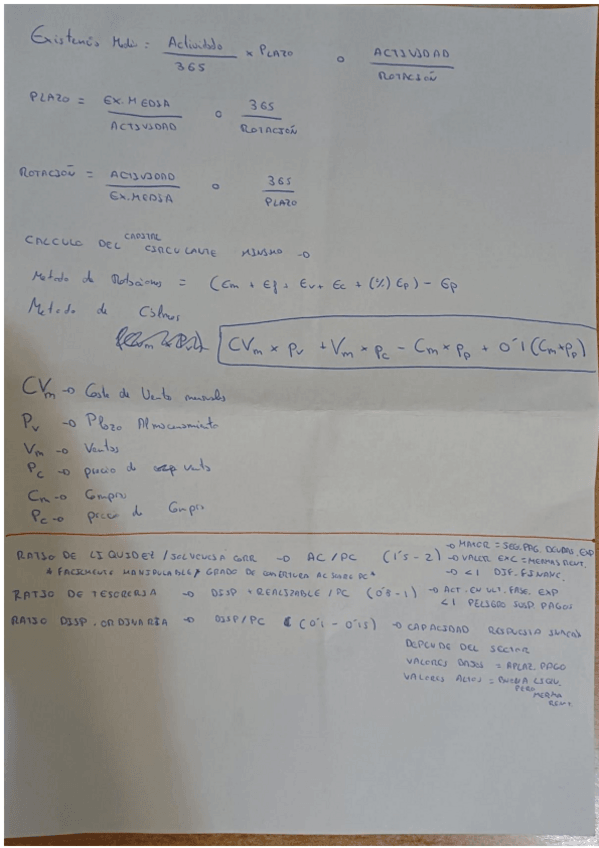 Existencias Medias = Actividad / 365 x PLAZO o ACTIVIDAD / ROTACIÓN
PLAZO = EX.MEDIA / ACTIVIDAD o 365 / ROTACIÓN
ROTACIÓN = ACTIVIDAD / EX.MEDIA o 365 / PLAZO
CALCULO DEL CAPITAL CIRCULANTE MINIMO →
Metodo de Rotaciones = (Em + Ef + Ev + Ec + (%) Ep) - Ep
Metodo de
CVm x Pv + Vm x Pc - Cm x Pp + 0'1 (Cm x Pp)
CVm → Coste de Venta mensuales
Pv → Plazo Almacenamiento
Vm → Ventas
Pc → precio de venta
Cm → Compra
Pc → precio de Compra
RATIO DE LIQUIDEZ / SOLVENCIA CORR → AC / PC (1'5 - 2) → MAYOR = SEG. PAG. DEUDAS. EXP
→ VALOR EXC = MERMAS RENT.
* FACILMENTE MANIPULABLE * GRADO DE COBERTURA AC SOBRE PC * → <1 DIF. FINANC.
RATIO DE TESORERIA → DISP + REALIZABLE / PC (0'8 - 1) → ACT. EN ULT. FASE. EXP
<1 PELIGRO SUSP. PAGOS
RATIO DISP. ORDINARIA → DISP / PC (0'1 - 0'15) → CAPACIDAD RESPUESTA
DEPENDE DEL SECTOR
VALORES BAJOS = APLAZ. PAGO
VALORES ALTOS = BUENA LIQU.
PERO MERMA RENT.